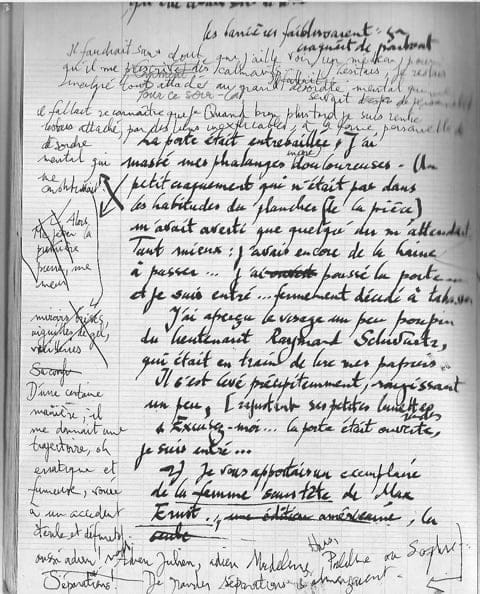 les barrières faiblissaient
craquait de partout
Il faudrait sans doute que j'aille voir un médecin, pour
qu'il me prescrive des calmants. J'hésitais, je restais
malgré tout attaché au grand désordre mental qui
Pour ce soir-là
il fallait reconnaître que je Quand bien plus tard je suis rentré
par des liens inexplicables, à la forme personnelle de
désordre
mental qui
me constituait
La porte était entrebaillée, j'ai
massé mes phalanges douloureuses - Un
petit craquement qui n'était pas dans
les habitudes du plancher [de la pièce]
m'avait averti que quelqu'un m'attendait.
Tant mieux : j'avais encore de la haine
à passer... j'ai poussé la porte
et je suis entré... fermement décidé à
J'ai aperçu le visage un peu poupin
du lieutenant Raymond Schwartz,
qui était en train de lire mes papiers.
Il s'est levé précipitemment, rougissant
un peu, [rajustant ses petites lunettes
rondes
« Excusez-moi... la porte était ouverte,
je suis entré...
Je vous apportais un exemplaire
de la femme sans tête de Max
Ernst., une édition américaine, la
seule
Alors
Me jeter la
première
pierre, me
miroirs brisés,
aiguilles de gel,
verreries
D'une certaine
manière, il
me donnait une
trajectoire, oh
erratique et
fumeuse, vouée
à un accident
Adieu Julien, adieu Madeleine,
ou Sophie
Séparations! De grandes séparations s'annonçaient.